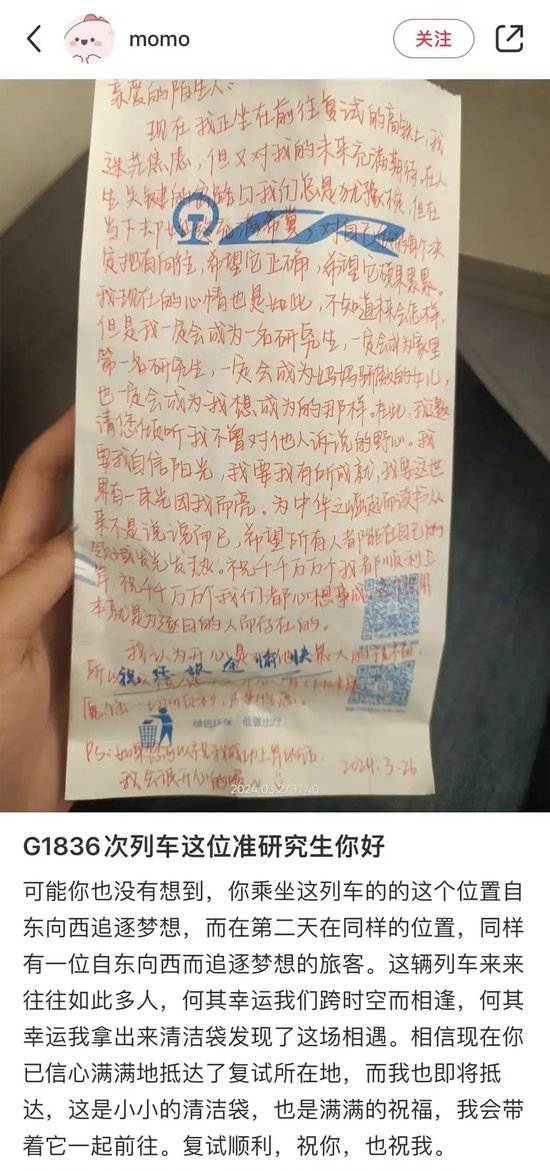 momo
关注
亲爱的陌生人：
现在我正坐在前往复试的高铁上，我
迷茫焦虑，但又对我的未来充满期待。在人
生关键的分路口我们总是犹豫不决，但在
当下去
决
定抱有向往，希望它正确，希望它硕果累累。
我现在的心情也是如此，不知道未来会怎样，
但是我一定会成为一名研究生，一定会成为家里
第一名研究生，一定会成为妈妈骄傲的女儿，
也一定会成为我想成为的那样。在此，我邀
请您倾听我不曾对他人诉说的野心。我
要我自信阳光，我要我有所成就，我要这世
界有一束光因我而亮。为中华之崛起而读书从
来不是说说而已，希望所有人都能在自己的
领域发光发热。祝千千万万个我都顺利上
岸，祝千千万万个我们都心想事成。
本就是为逐日的人而存在的。
我认为开心是
最大的
所以
祝您旅途愉快
愿您一切顺利，
绿色环保 低碳出行
Ps：如果您
成功上岸的话，
我会很开心的
2024.3.26
2024.03.27 11:40
G1836次列车这位准研究生你好
可能你也没有想到，你乘坐这列车的的这个位置自
东向西追逐梦想，而在第二天在同样的位置，同样
有一位自东向西而追逐梦想的旅客。这辆列车来来
往往如此多人，何其幸运我们跨时空而相逢，何其
幸运我拿出来清洁袋发现了这场相遇。相信现在你
已信心满满地抵达了复试所在地，而我也即将抵
达，这是小小的清洁袋，也是满满的祝福，我会带
着它一起前往。复试顺利，祝你，也祝我。